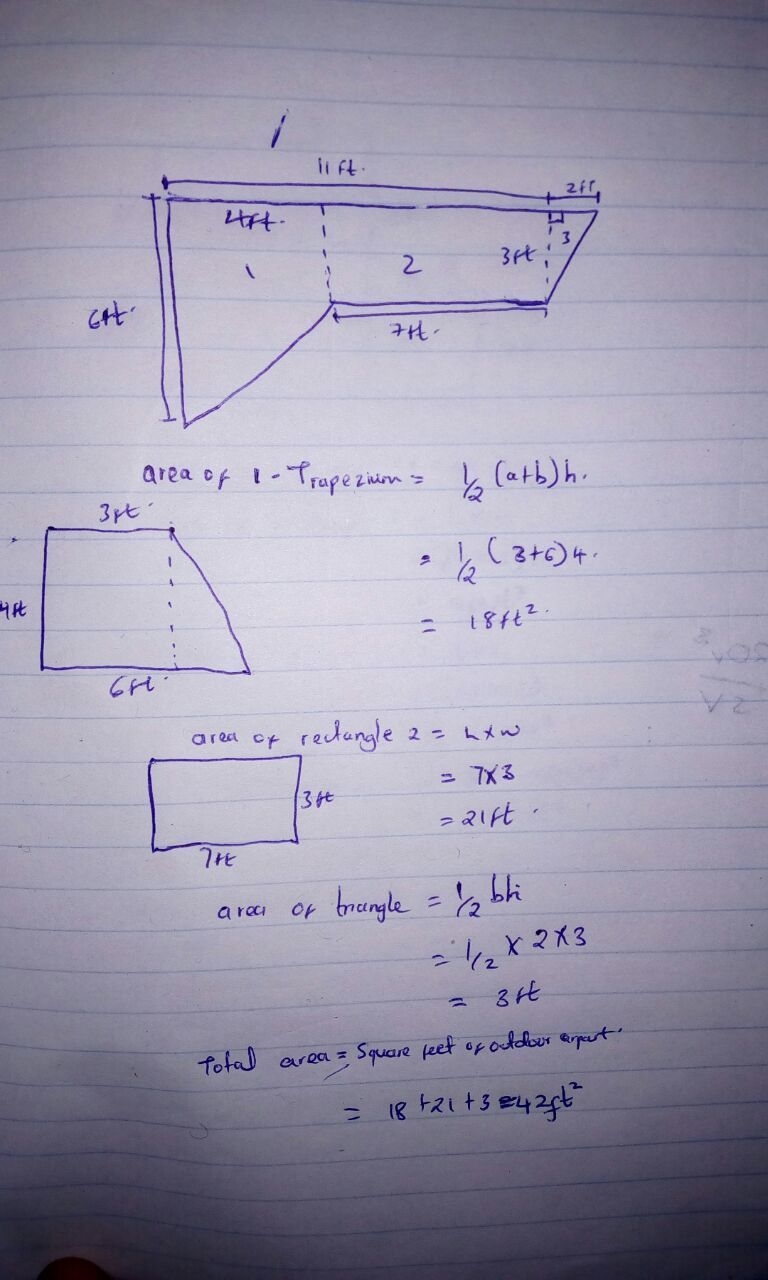 1
11 ft.
2ft
4ft.
3
3ft
1
2
6ft.
7ft.
area of 1 - Trapezium = 1/2 (a+b)h.
3ft
= 1/2 (3+6)4.
4ft
= 18ft².
6ft.
area of rectangle 2 = L x w
= 7x3
3ft
= 21ft.
7ft
area of triangle = 1/2 bh
= 1/2 x 2 x 3
= 3ft
Total area = Square feet of outdoor
= 18 + 21 + 3 = 42ft²